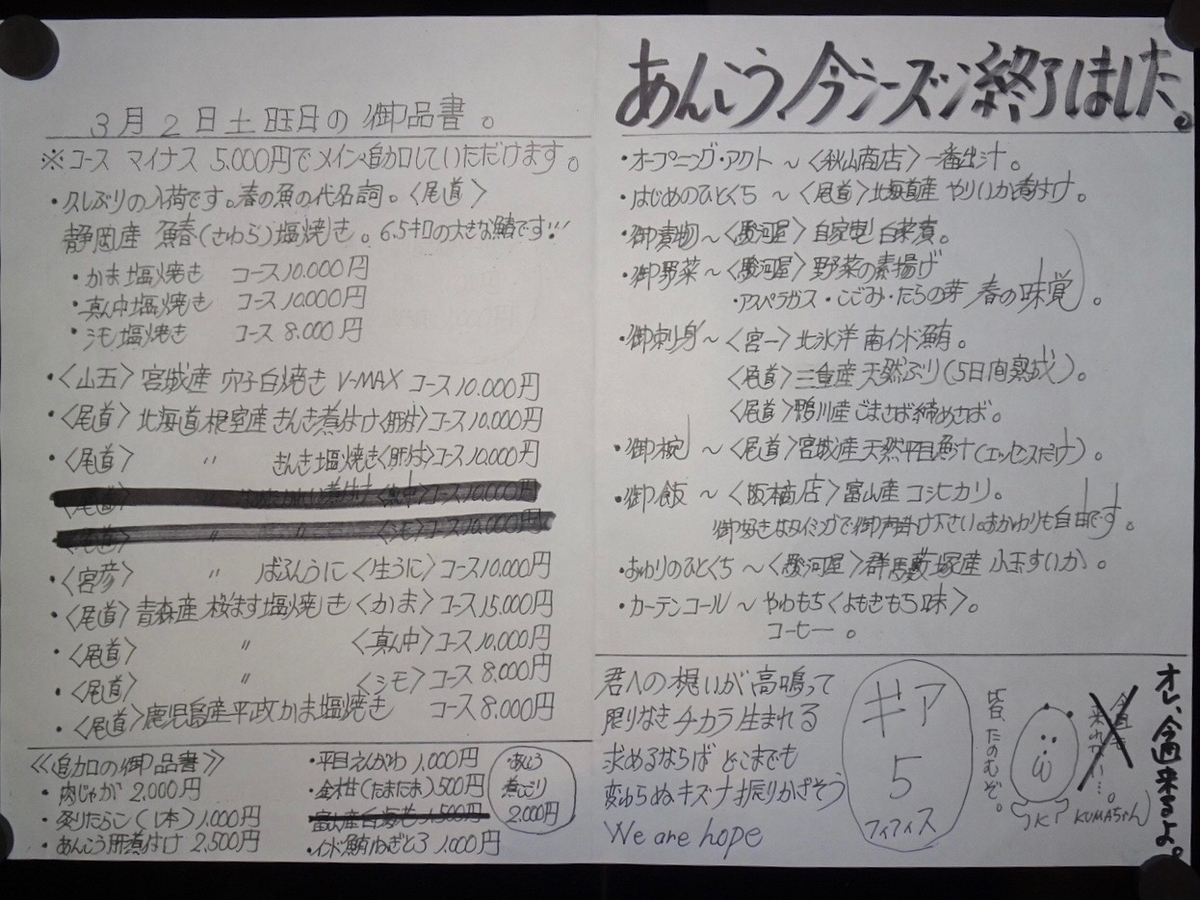 3月2日土曜日の御品書。
※コース マイナス 5.000円でメイン追加していただけます。
・久しぶりの入荷です。春の魚の代名詞。〈尾道〉
静岡産 鰆(さわら)塩焼き。6.5キロの大きな鰆です!!
・かま塩焼き コース10.000円
・真ん中塩焼き コース10.000円
・シモ塩焼き コース 8.000円
・〈山五〉宮城産 穴子白焼き V-MAX コース10.000円
・〈尾道〉北海道根室産 きんき煮付け〈肝付〉コース10.000円
・〈尾道〉 〃 きんき塩焼き〈肝付〉コース10.000円
・〈宮彦〉 〃 ばふんうに〈生うに〉コース10.000円
・〈尾道〉青森産 桜ます塩焼き〈かま〉コース15.000円
・〈尾道〉 〃 〈真ん中〉コース10.000円
・〈尾道〉 〃 〈シモ〉コース 8.000円
・〈尾道〉鹿児島産平政かま塩焼き コース8.000円
《追加の御品書》
・肉じゃが 2,000円
・炙りたらこ(1本)1,000円
・あんこう肝煮付け 2,500円
・平目えんがわ 1,000円
・金柑(たまたま)500円
・インド鮪ねぎとろ 1,000円
あんこう
煮こごり
2,000円
あんこう、今シーズン終了しました。
・オープニング・アクト～〈秋山商店〉一番出汁。
・はじめのひとくち～〈尾道〉北海道産 やりいか煮付け。
・御漬物～〈駿河屋〉自家製 白菜漬。
・御野菜～〈駿河屋〉野菜の素揚げ
・アスパラガス・こごみ・たらの芽 春の味覚。
・御刺身～〈宮一〉北氷洋 南インド鮪。
〈尾道〉三重産 天然ぶり(5日間熟成)。
〈尾道〉鴨川産 ごまさば締めさば。
・御椀～〈尾道〉宮城産 天然平目魚汁(エッセンスだけ)。
・御飯～〈板橋店〉富山産 コシヒカリ。
御好きなタイミングで御声掛け下さい。おかわりも自由です。
・おわりのひとくち～〈駿河屋〉群馬藪塚産 小玉すいか。
・カーテンコール～やわもち〈よもぎもち味〉。
コーヒー。
君への想いが高鳴って
限りなきチカラ生まれる
求めるならば どこまでも
変わらぬキズナ振りかざそう
We are hope
ギア
5
フィフィス
皆、たのむぞ。
KUMAちゃん
オレ、今週来るよ。